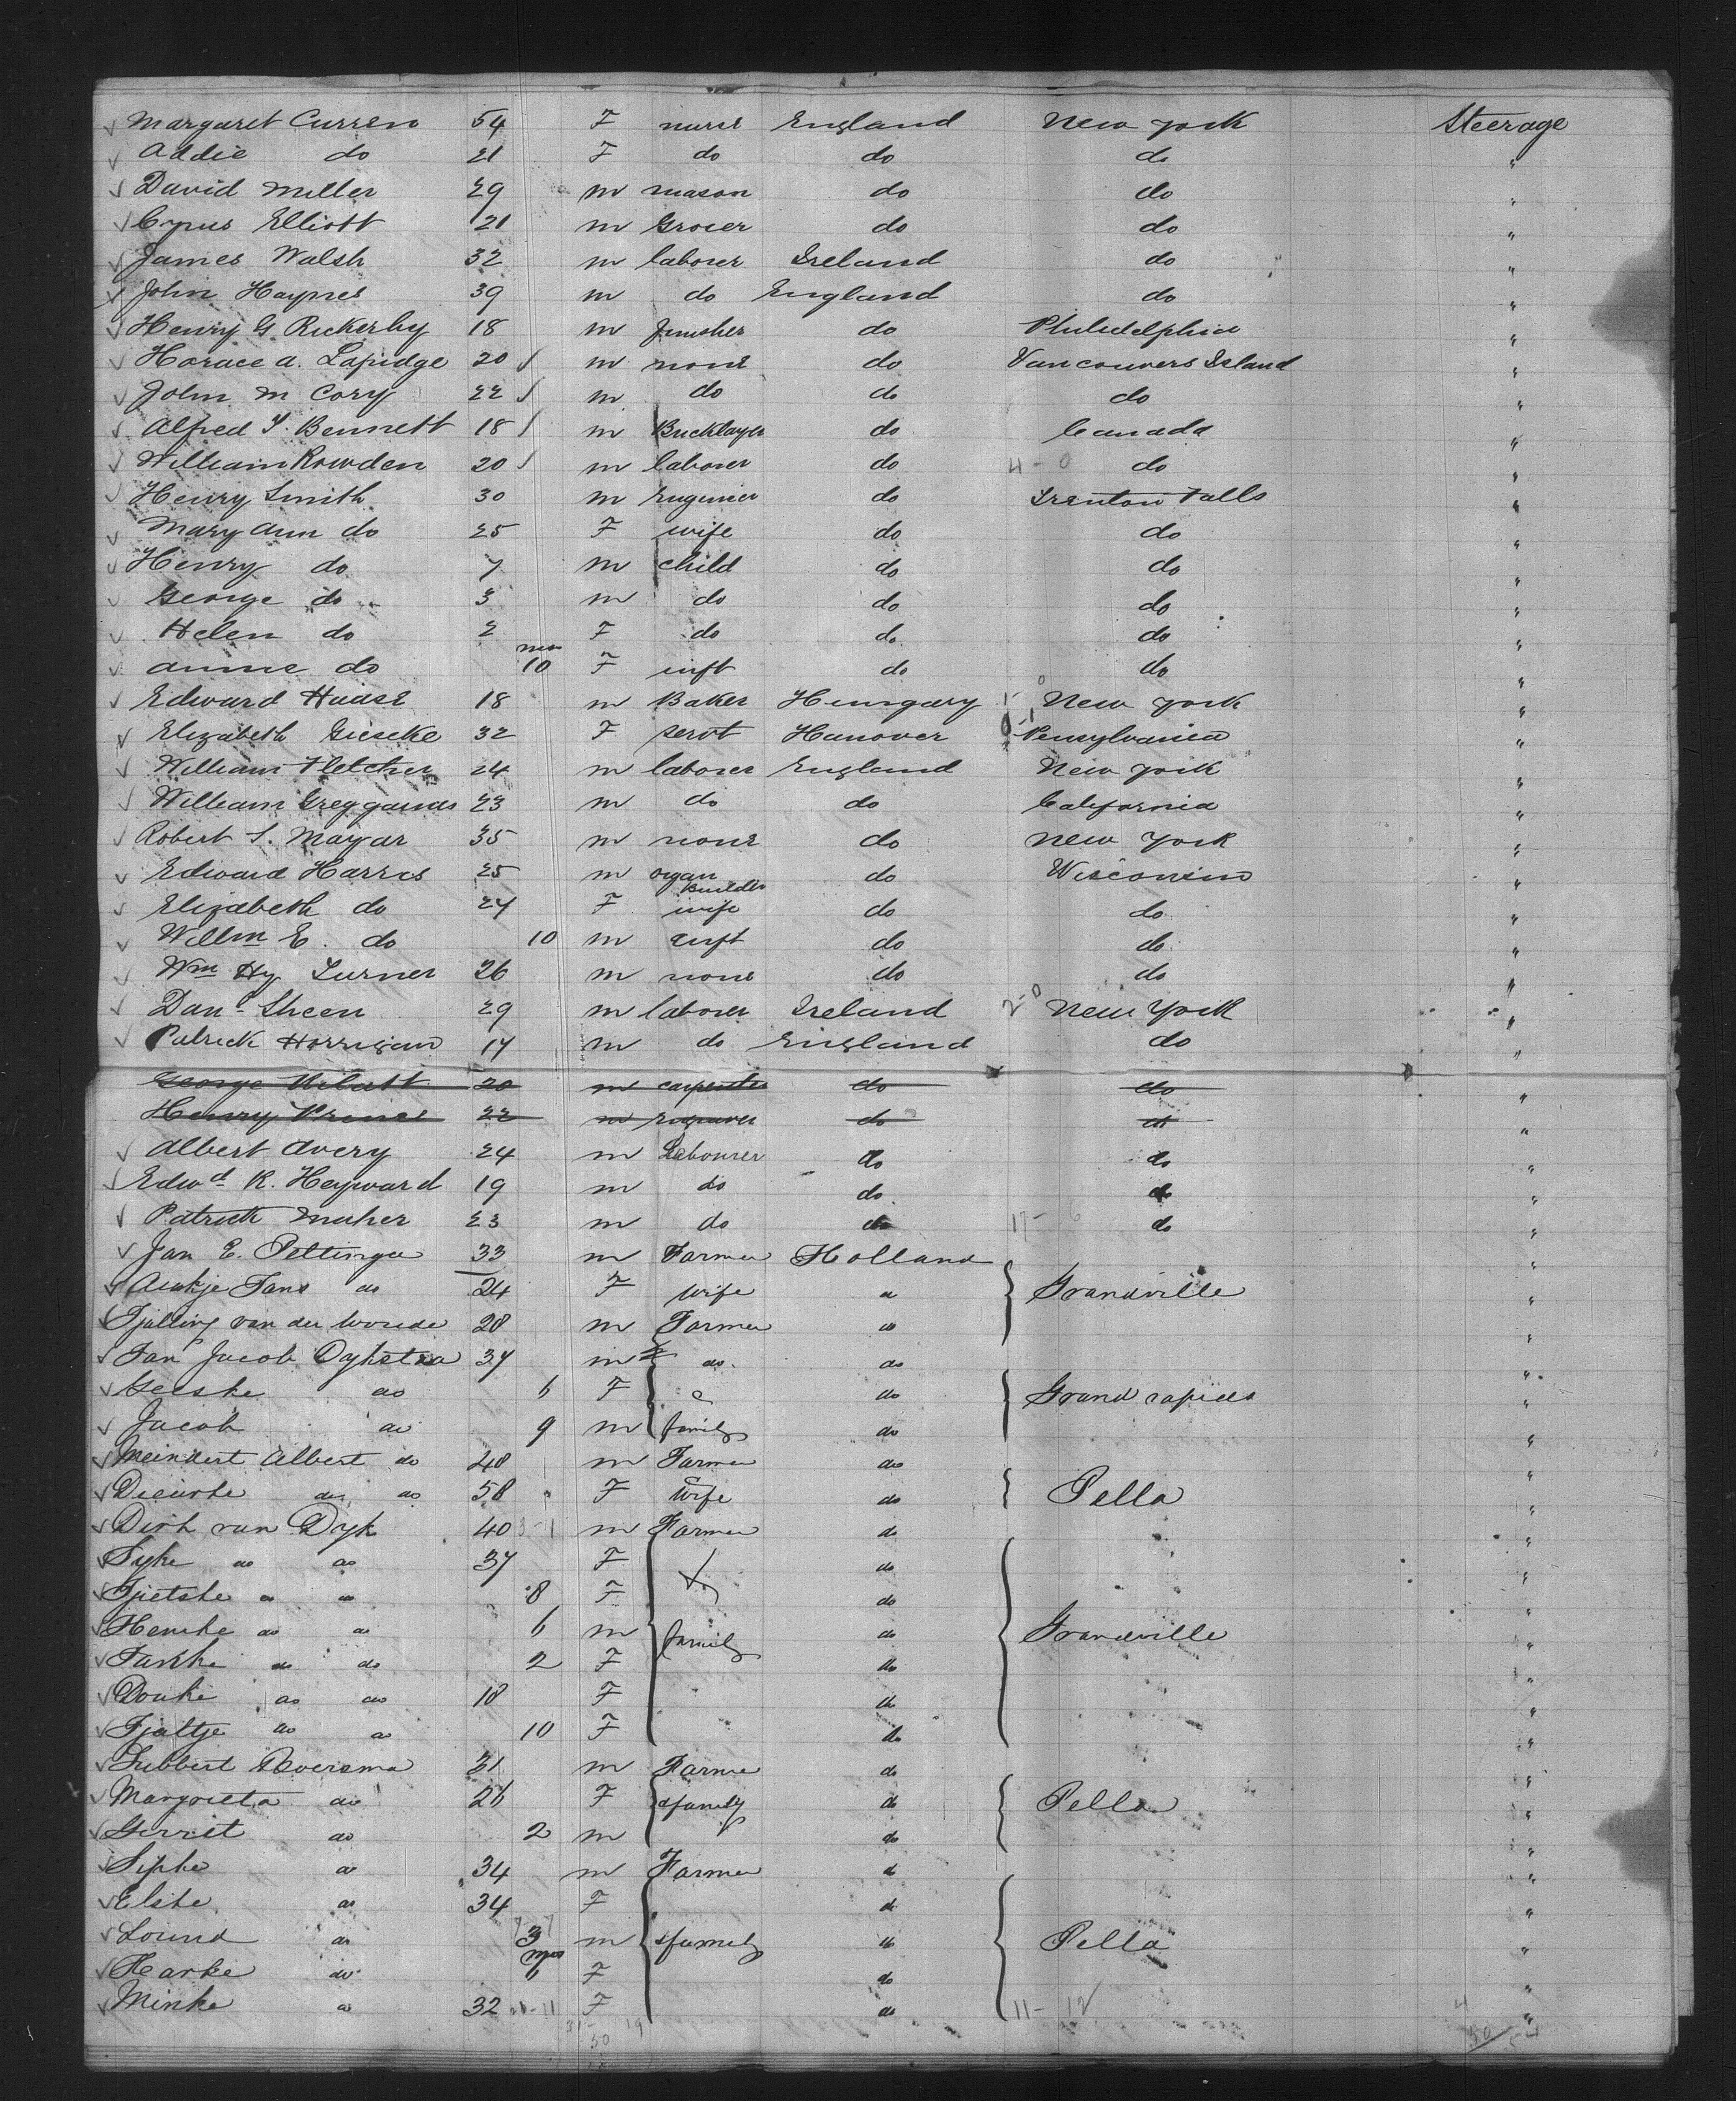 Margaret Curren 54 F nurse England New York Steerage
Addie do 21 F do do do "
David Miller 29 m mason do do "
Cyrus Elliott 21 m Grocer do do "
James Walsh 32 m laborer Ireland do "
John Haynes 39 m do England do "
Henry G Rickerby 18 m do Philidelphia "
Horace A. Lapidge 20 m none do Vancouvers Island "
John M Cory 22 m do do do "
Alfred Bennett 18 m Bricklayer do Canada "
William Rowden 20 m laborer do 4 - 0 do "
Henry Smith 30 m Engineer do Trenton Falls "
Mary Ann do 25 F wife do do "
Henry do 7 m child do do "
George do 3 m do do do "
Helen do 2 F do do do "
Annie do mos 10 F inft do do "
Edward Haase 18 m Baker Hungary New York "
Elizabeth Giescke 32 F servt Hanover Pensylvania "
William Fletcher 24 m laborer England New York "
William 23 m do do California "
Robert S. Mayar 35 m none do New York "
Edward Harris 25 m organ Builder do Wisconsin "
Elizabeth do 24 F wife do do "
Willm E. do 10 m inft do do "
Wm Hy Turner 26 m none do do "
Danl Sheen 29 m laborer Ireland 2-0 New York "
Patrick Horrigan 17 m do England do "
George 20 m carpenter do do "
Henry Prince 22 m do do "
Albert Avery 24 m Labourer do do "
Edwd K. Heyward 19 m do do do "
Patrick Maher 23 m do do 17 - 6 do "
Jan E. Pettinga 33 m Farmer Holland "
Aukje Jans do 24 F wife do Grandville "
Tjalling van der Woude 28 m Farmer do "
Jan Jacob Dykstra 37 m do do "
Geeske do 6 F do Grand rapids "
Jacob do 9 m family do "
Meindert Albert do 48 m Farmer do "
do do 58 F Wife do Pella "
Dirk van Dyk 40 m Farmer do "
Syke do do 37 F do "
Tjietske do do 8 F do "
Henske do do 6 m family do Grandville "
do do 2 F do "
Douke do do 18 F do "
Tjaltje do do 10 F do "
Lubbert 31 m Farmer do "
Margrieta do 26 F family do Pella "
Gerrit do 2 m do "
Sipke do 34 m Farmer do "
Elske do 34 F do "
do 3 m family do Pella "
Harke do mos 6 F do "
Minke do 32 F do 11 - 12 "
50 54